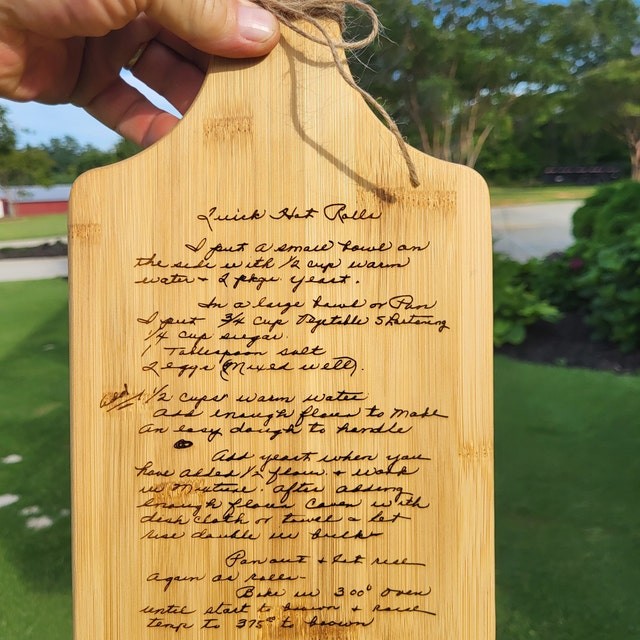 Quick Hot Rolls
I put a small bowl on
the side with 1/2 cup warm
water + 2 pkgs yeast.
In a large bowl or Pan
I put 3/4 cup Vegetable Shortening
1/4 cup sugar.
1 Tablespoon salt
2 eggs (Mixed well).
add 1 1/2 cups warm water
Add enough flour to make
an easy dough to handle
Add yeast when you
have added 1/2 flour + work
in Mixture. After adding
enough flour Cover with
dish cloth or towel & let
rise double in bulk
Pan out + let rise
again as rolls.
Bake in 300° oven
until start to brown + raise
temp to 375° to brown